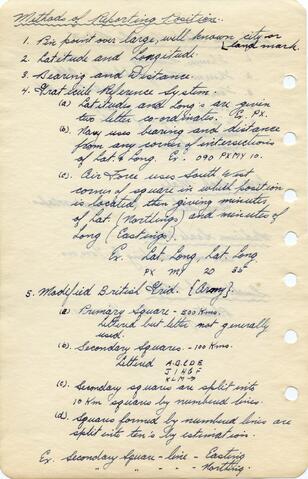 Methods of Reporting Position.
1. Pin point over large, well known city or
land mark.
2. Latitude and Longitude.
3. Bearing and Distance.
4. Graticule Reference System.
(a) Latitudes and Long's are given
two letter co-ordinates. Ex. PX.
(b) Navy uses bearing and distance
from any corner of intersections
of Lat & Long. Ex. 090 PXMY 10.
(c) Air Force uses South & West
corner of square in which position
is located, then giving minutes
of Lat. (Northings) and minutes of
Long (Eastings).
Ex. Lat, Long, Lat, Long
PX MY 20 35
5. Modified British Grid. {Army}
(a) Primary Square - 500 Kms.
lettered but letter not generally
used.
(b). Secondary Squares. - 100 Kms.
lettered A B C D E
J I H G F
K L M →
(c). Secondary squares are split into
10 Km squares by numbered lines.
(d). Squares formed by numbered lines are
split into ten's by estimation.
Ex. Secondary Square - line - Easting
" " " - Northing.